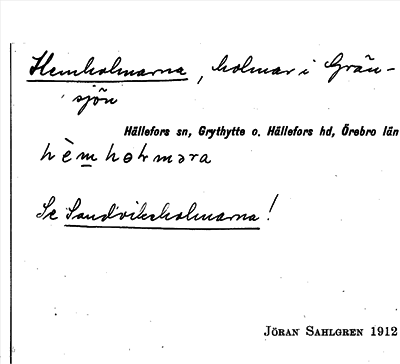 Hemholmarna, holmar i Grän-
sjön
Hällefors sn, Grythytte o. Hällefors hd, Örebro län
hèm hɵhməra
Se Sandviksholmarna!
JÖRAN SAHLGREN 1912